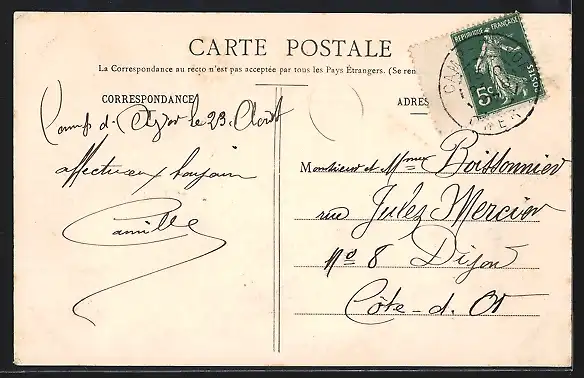 CARTE POSTALE
La Correspondance au recto n'est pas acceptée par tous les Pays Étrangers. (Se ren
CORRESPONDANCE
ADRES
RÉPUBLIQUE FRANÇAISE
5c
POSTES
CHER
Camp d'Avor le 23. Août
affectueux bonjour
Camille
Monsieur et Mme Boissonnier
rue Julez Mercier
No 8 Dijon
Côte-d. Or